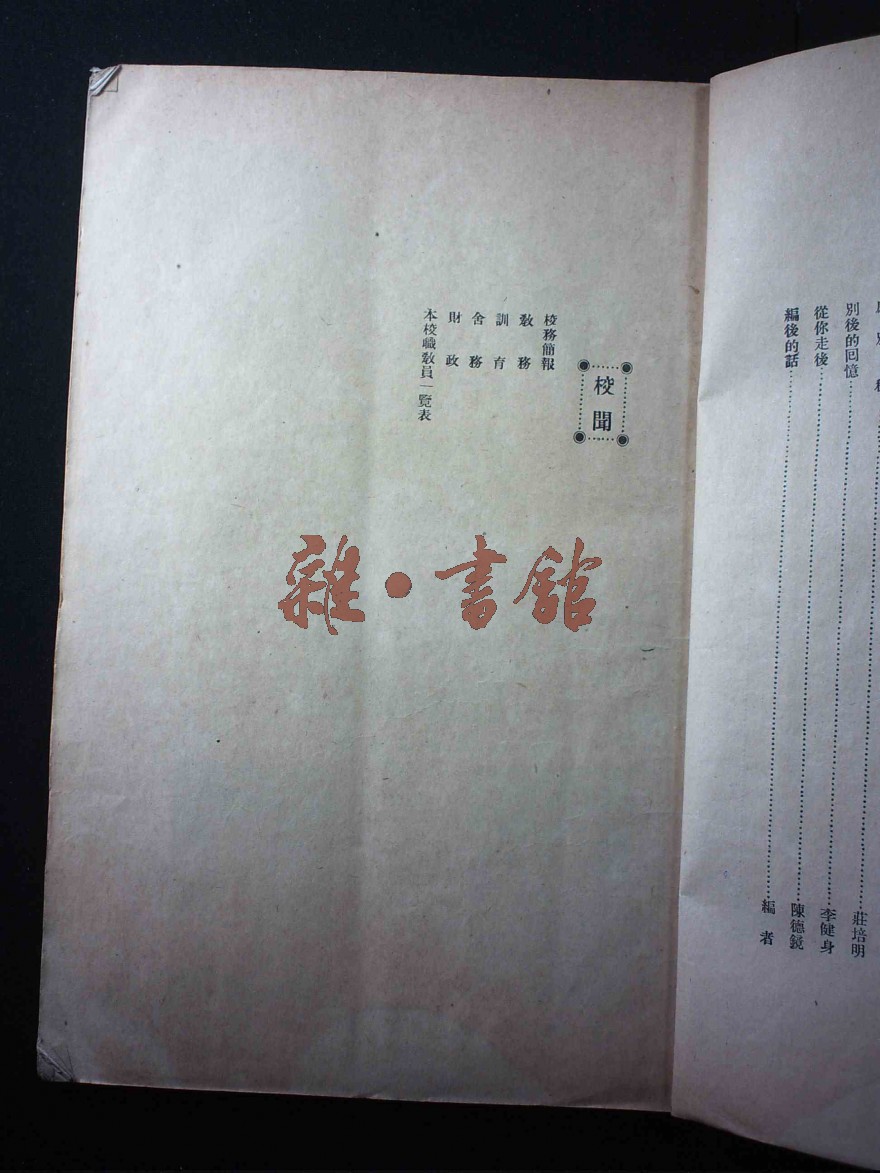 莊培明
別後的回憶……李健身
從你走後……陳德鏡
編後的話……編者
校聞
校務簡報
教務
訓育
舍務
財政
本校職教員一覽表
雜·書館